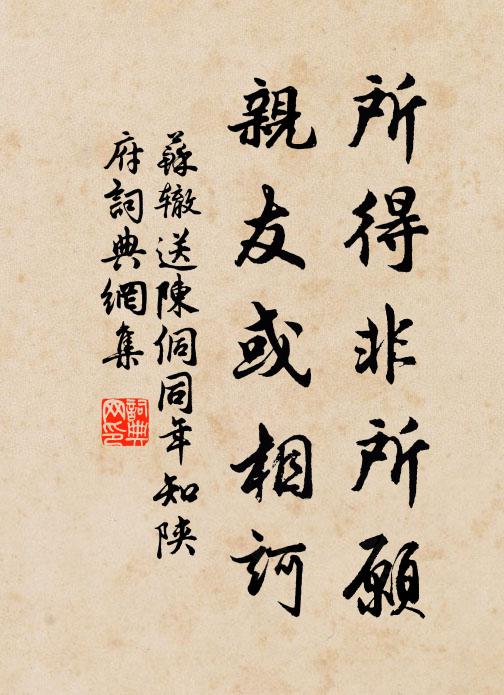 所得非所願
親友或相訶
蘇辙送陳侗同年知陝
府詞典網集
詞典网印